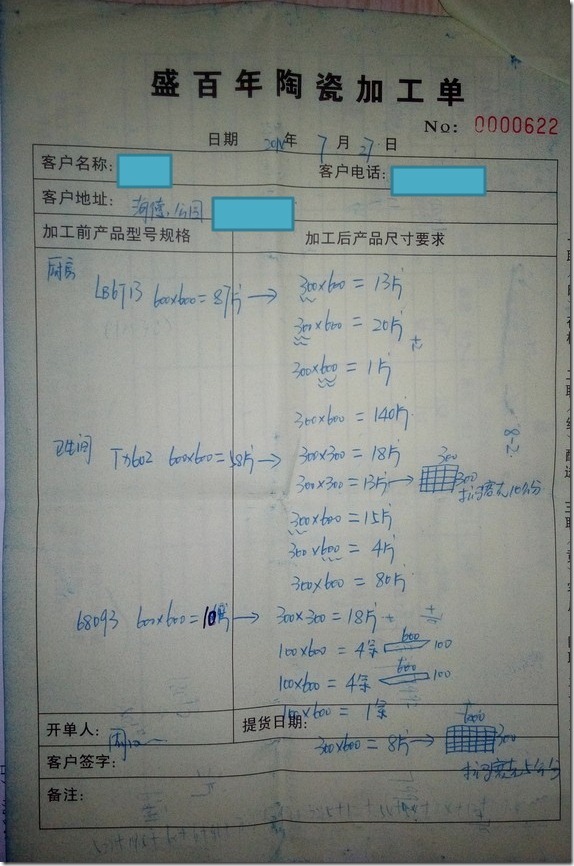 盛百年陶瓷加工单
No: 0000622
日期 年 7 月 27 日
客户名称: 客户电话:
客户地址: 公园
加工前产品型号规格 加工后产品尺寸要求
厨房
LB6713 600x600=87片 → 300x600 = 13片
300x600 = 20片
300x600 = 1片
300x600 = 140片
卫生间 600x600=58片 → 300x300 = 18片
300x300 = 13片 → 300 300
300x600 = 15片
300x600 = 4片
300x600 = 80片
68093 600x600=10片 → 300x300 = 18片
100x600 = 4条 600 100
100x600 = 4条 600 100
100x600 = 1条
开单人: 提货日期:
300x600 = 8片 → 600 300
客户签字:
备注:
8-2.